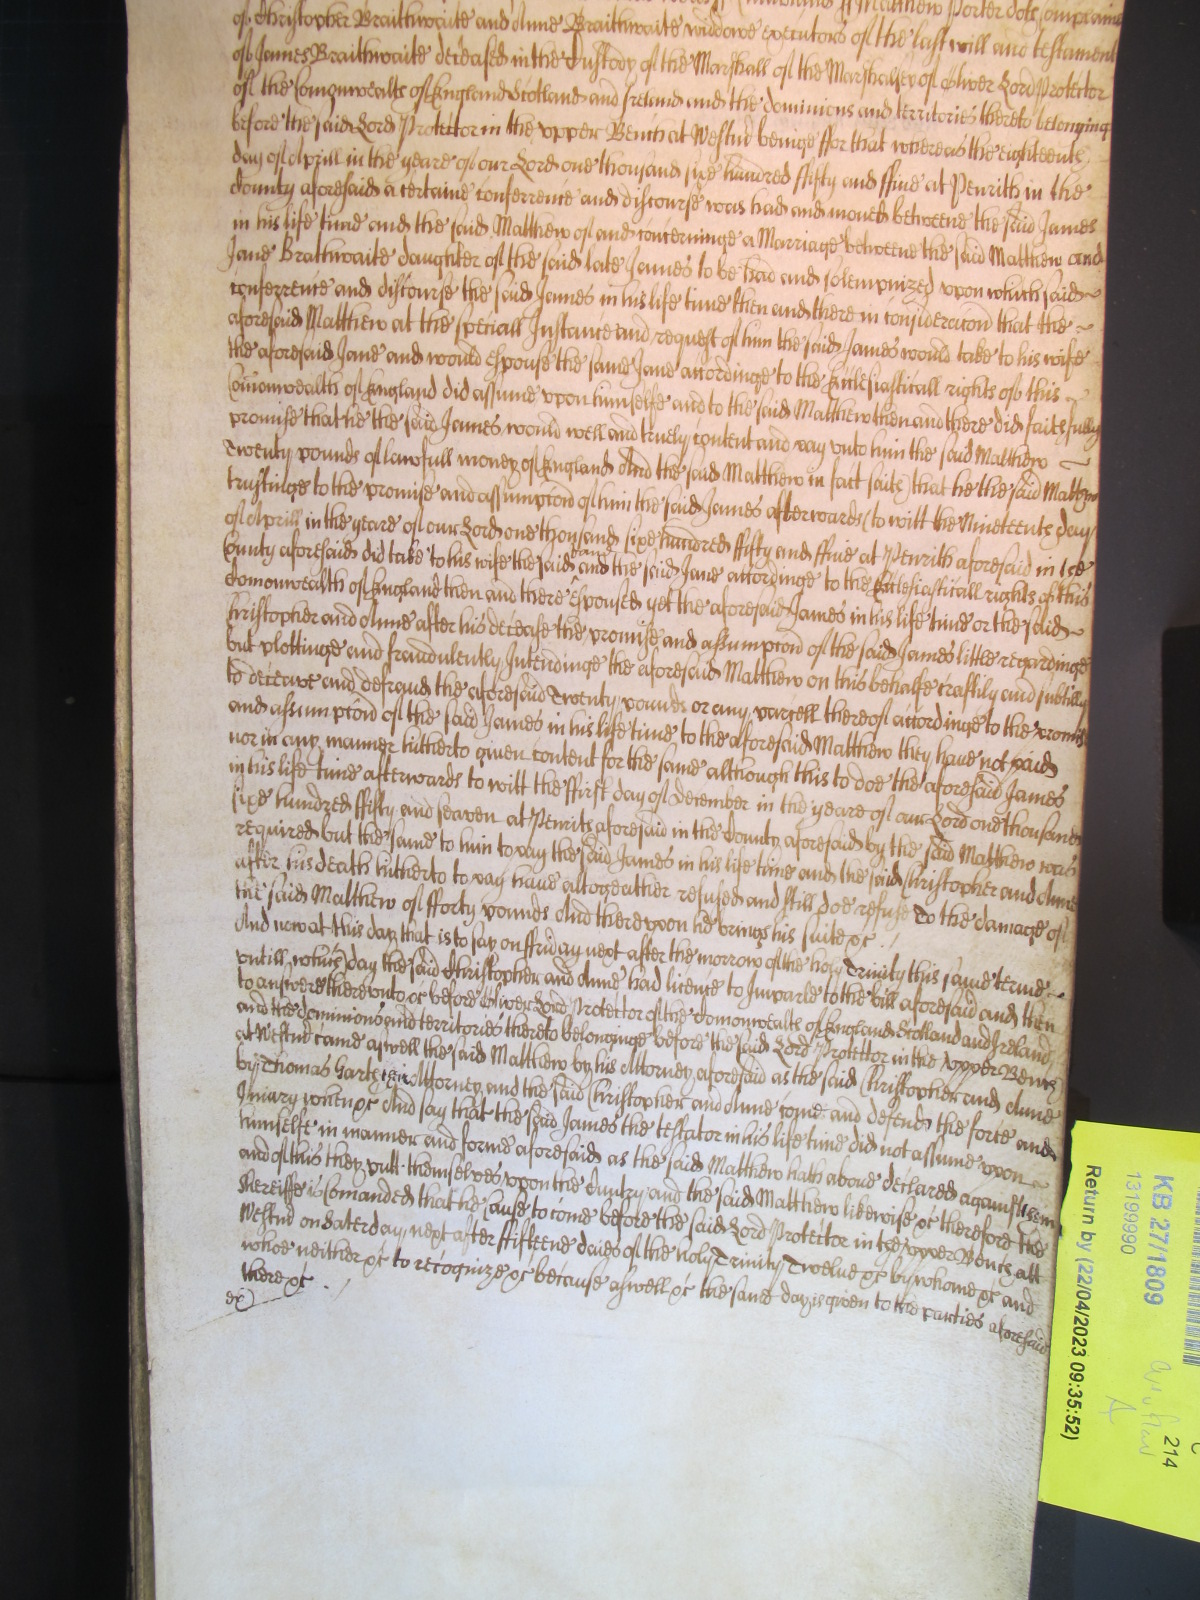 Matthew Porter doth Complaine
of Christopher Braithwaite and Anne Braithwaite widdowe executors of the last will and testament
of James Braithwaite deceased in the Custody of the Marshall of the Marshalsey of Oliver Lord Protector
of the Comonwealth of England Scotland and Ireland and the dominions and territories thereto belonging
before the said Lord Protector in the upper Bench at Westmr beinge ffor that whereas the eighteenth
day of Aprill in the yeare of our Lord one thousand sixe hundred ffifty and ffive at Penrith in the
County aforesaid a certaine conferrence and discourse was had and moued betweene the said James
in his life time and the said Matthew of and concerninge a Marriage betweene the said Matthew and
Jane Brathwaite daughter of the said late James to be had and solempnized upon which said
conferrence and discourse the said James in his life time then and there in consideracon that the
aforesaid Matthew at the speciall Instance and request of him the said James would take to his wife
the aforesaid Jane and would espouse the same Jane accordinge to the Ecclesiasticall rights of this
Comonwealth of England did assume upon himselfe and to the said Matthew then and there did faithfully
promise that he the said James would well and truely content and pay unto him the said Matthew
Twenty pounds of lawfull money of England And the said Matthew in fact saith that he the said Matthew
trustinge to the promise and assumpcon of him the said James afterwards (to witt the Nineteenth day
of Aprill in the yeare of our Lord one thousand sixe hundred ffifty and ffive at Penrith aforesaid in the
County aforesaid did take to his wife the said Jane and the said Jane accordinge to the Ecclesiasticall rights of this
Comonwealth of England then and there espoused yet the aforesaid James in his life time or the said
Christopher and Anne after his decease the promise and assumpcon of the said James little regardinge
but plottinge and fraudulently Intendinge the aforesaid Matthew on this behalfe craftily and subtilly
to deceave and defraud the aforesaid Twenty pounds or any parcell thereof accordinge to the promise
and assumpcon of the said James in his life time to the aforesaid Matthew they have not paid
nor in any manner hitherto given content for the same although this to doe the aforesaid James
in his life time afterwards to witt the ffirst day of December in the yeare of our Lord one thousand
sixe hundred ffifty and seaven at Penrith aforesaid in the County aforesaid by the said Matthew was
required but the same to him to pay the said James in his life time and the said Christopher and Anne
after his death hitherto to pay have altogeather refused and still doe refuse To the damage of
the said Matthew of fforty pounds And thereupon he brings his suite &c
And now at this day that is to say on ffriday next after the morrow of the holy Trinity this same terme
untill which day the said Christopher and Anne had licence to Imparle to the bill aforesaid and then
to answere thereunto &c before Oliver Lord Protector of the Comonwealth of England Scotland and Ireland
and the dominions and territories thereto belonginge before the said Lord Protector in the Upper Bench
at Westmr came aswell the said Matthew by his Attorney aforesaid as the said Christopher and Anne
by Thomas Garth their Attorney and the said Christopher and Anne come and defend the force and
Iniury when &c And say that the said James the testator in his life time did not assume upon
himselfe in manner and forme aforesaid as the said Matthew hath above declared against them
and of this they putt themselves upon the Cuntry and the said Matthew likewise &c therefore the
Shereiffe is Comanded that he cause to come before the said Lord Protector in the Upper Bench att
Westmr on Saterday next after ffifteene daies of the holy Trinity Twelve &c by whome &c and
whoe neither &c to recognize &c because aswell &c the same day is given to the parties aforesaid
there &c
KB 27/1809
13199990
Return by (22/04/2023 09:35:52)
214
A
C